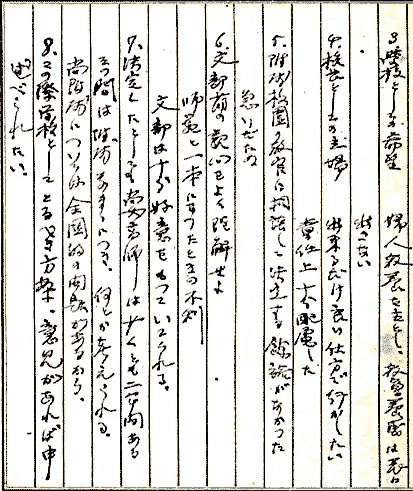 3. 学校としての希望　婦人教養を主とし、教員養成は表に
出さない
4. 校長としての立場　出来るだけ良い仕官で行かしたい
責任上十分配慮した
5. 附属校園教官に相談して決定する余裕がなかった
急いだため
6. 文部省の親心をよく理解せよ
師範と一本になったときの不利
文部は十分好意をもっていてくれる。
7. 決定したとしても尚女高師は少くとも二年間ある
その間は附属もそのまゝにつき、何とか考えられる。
尚附属については全国的の問題があるから、
8. この際学校としてとるべき方策、意見があれば申
述べられたい。